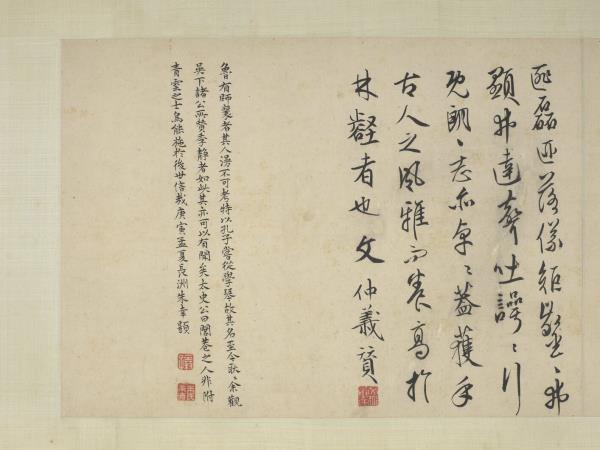 匪磊匪落儀矩嶷〻弗
顯弗達聲吐諤〻行
既朗〻志亦卓〻蓋獲乎
古人之風雅而養高於
林壑者也文仲義贊
魯有師襄者其人不可考特以孔子嘗從學琴故其名至今耿〻余觀
吳下諸公所贊季靜者如此其亦可以有聞矣太史公曰閭巷之人非附
青雲之士烏能施於後世信哉庚寅孟夏長洲朱